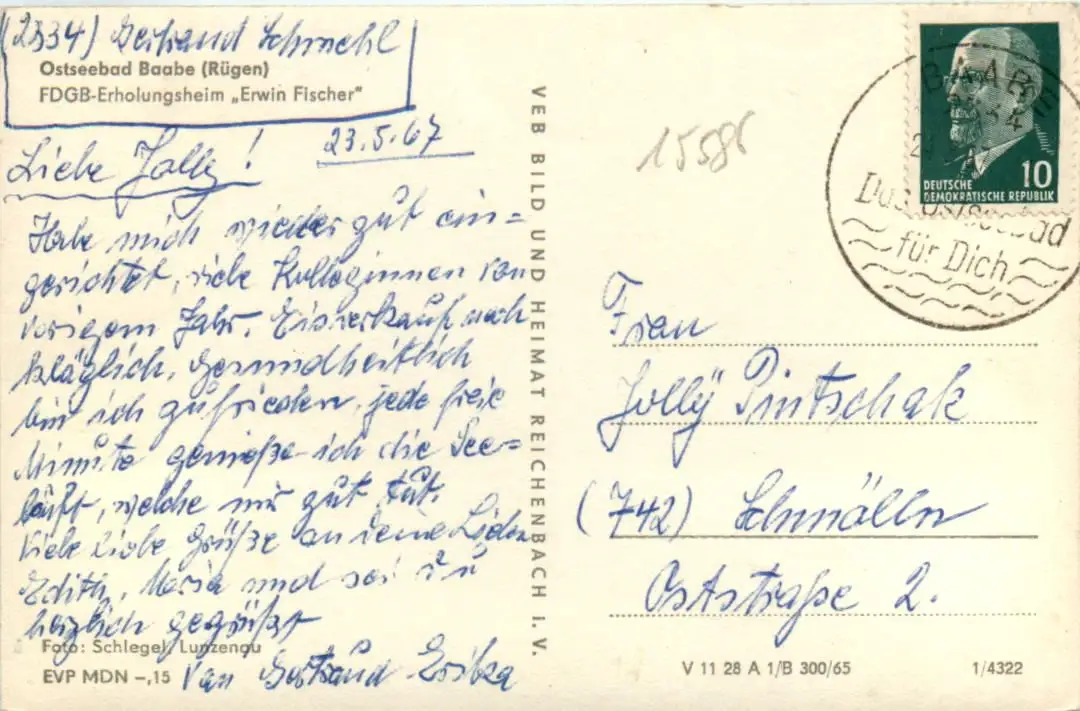 (2334) Gertraud Schmehl
Ostseebad Baabe (Rügen)
FDGB-Erholungsheim „Erwin Fischer"
23.5.67
Liebe Jolly!
Habe mich wieder gut ein=
gerichtet, viele Kolleginnen von
vorigem Jahr. Eisverkauf noch
kläglich. Gesundheitlich
bin ich zufrieden, jede freie
Minute genieße ich die See=
luft, welche mir gut tut.
Viele liebe Grüße an deine Lieben
Edith, Maria und sei du
herzlich gegrüßt
Von Gertraud
Foto: Schlegel, Lunzenau
EVP MDN –,15
VEB BILD UND HEIMAT REICHENBACH I. V.
15586
BAABE
Das Ostseebad
für Dich
10
DEUTSCHE
DEMOKRATISCHE REPUBLIK
Frau
Jolly Pintschak
(742) Schmölln
Oststraße 2.
V 11 28 A 1/B 300/65
1/4322